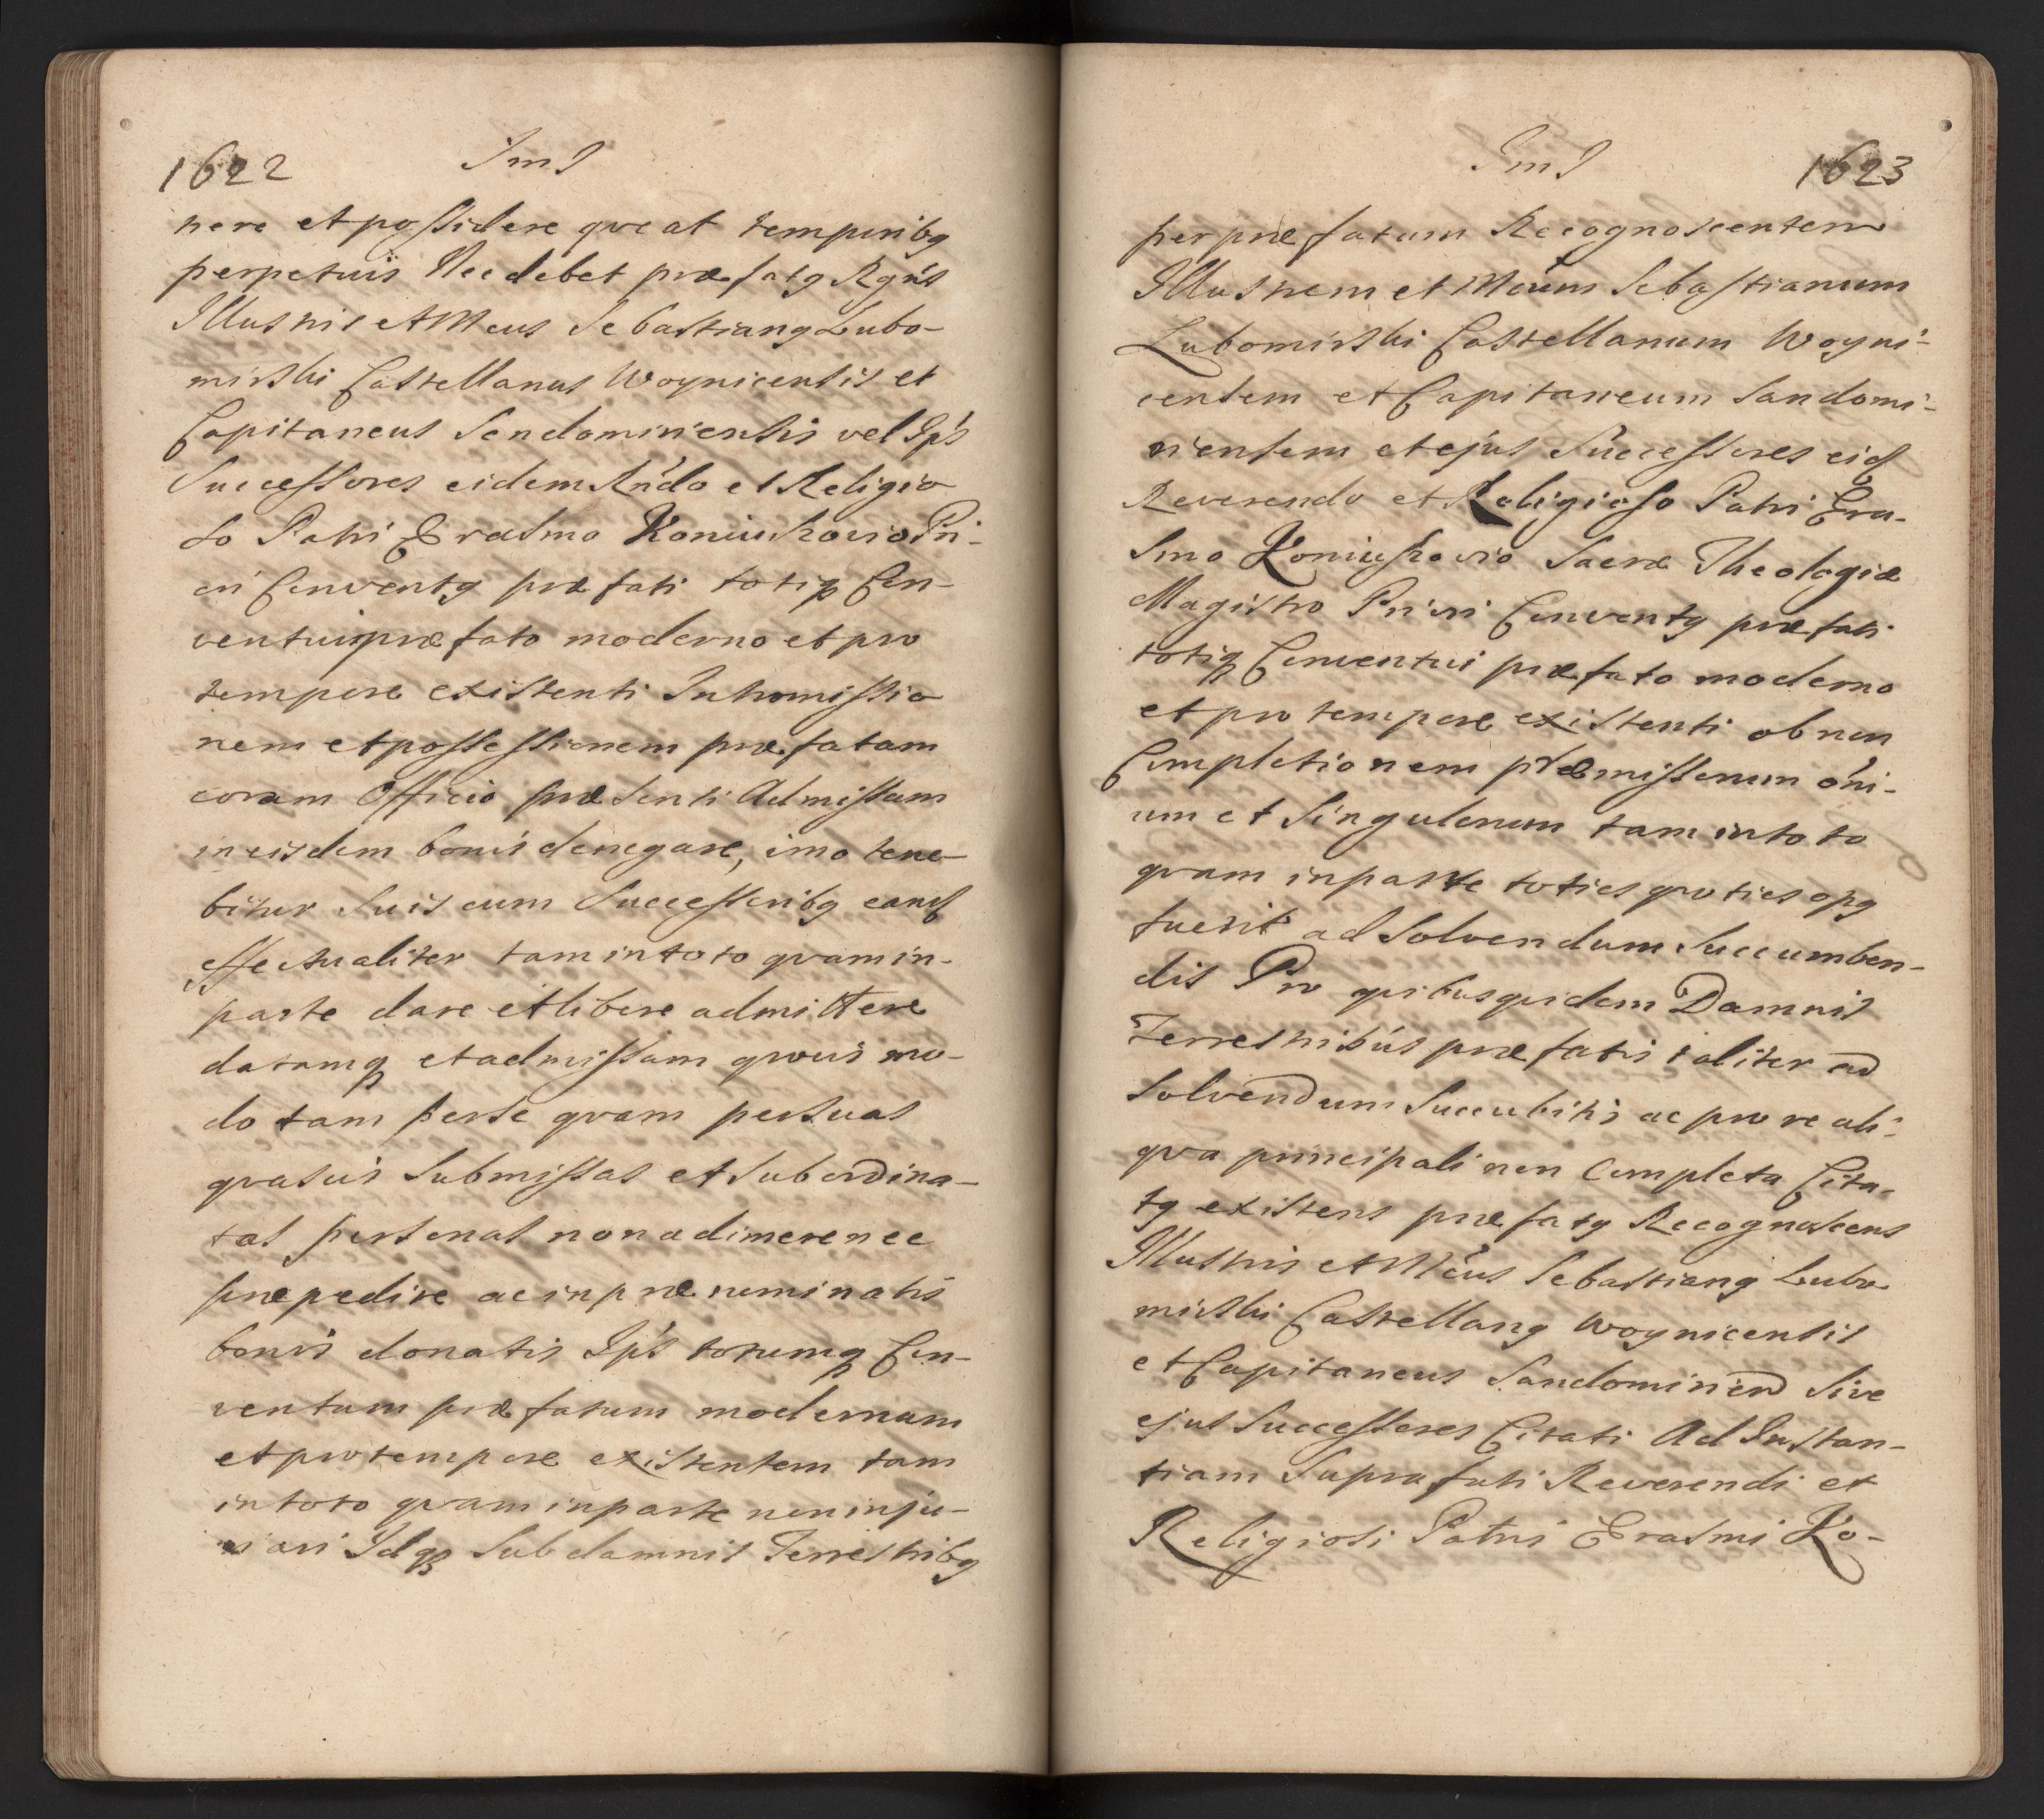 1622
ImJ
nere et possidere qveat temporibꝯ
perpetuis Nec debet præfatꝯ Rgńs
Illustris et Mcus Sebastianꝯ Lubo-
mirski Castellanus Woynicensis et
Capitaneus Sendomiriensis vel Ipś
Successores eidem Rńdo et Religio
so Patri Erasmo Koniuskovio Pri-
ori Conventꝯ præfati totiqꝫ Con-
ventui præfato moderno et pro
tempore existenti Intromissio
nem et possessionem præfatam
coram Officio præsenti Admissam
in eisdem bonis denegare, imo tene-
bitur suis cum Successoribꝯ eand
effectualiter tam in toto qvam in-
parte dare et libere admittere
datamqꝫ et admissam qvovis mo-
do tam per se qvam per suas
qvasvis submissas et subordina-
tas personas non adimere nec
præpedire ac in prænominatis
bonis donatis Ipś totumqꝫ Con-
ventum præfatum modernum
et pro tempore existentem tam
in toto qvam in parte non inju-
riari Idqꝫ sub damnis Terrestribꝯ
ImJ
1623
per præfatum Recognoscentem
Illustrem et Mcum Sebastianum
Lubomirski Castellanum Woyni-
censem et Capitaneum Sandomi-
riensem et ejus Successores eid
Reverendo et Religioso Patri Era-
smo Koniuskovio Sacræ Theologiæ
Magistro Priori Conventꝯ præfati
totiqꝫ Conventui præfato moderno
et pro tempore existenti ob non
Completionem præmissorum oni-
um et singulorum tam in toto
qvam in parte toties qvoties opꝯ
fuerit ad solvendum succumben-
dis Pro qvibus qvidem Damnis
Terrestribus præfatis taliter ad
solvendum succubitis ac pro re ali-
qva principali non completa Cita-
tꝯ existens præfatꝯ Recognoscens
Illustris et Mcus Sebastianꝯ Lubo
mirski Castellanꝯ Woynicensis
et Capitaneus Sandomirien sive
ejus Successores Citati Ad Instan-
tiam Supra fati Reverendi et
Religiosi Patris Erasmi Ko-